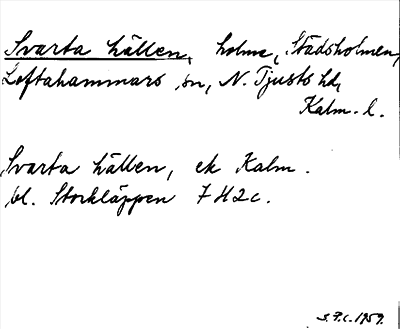 Svarta hällen, holme, Stadsholmen,
Loftahammars sn, N. Tjusts hd,
Kalm. l.
Svarta hällen, ek Kalm.
bl. Storkläppen 7 H 2 c.
S.F.C. 1959.